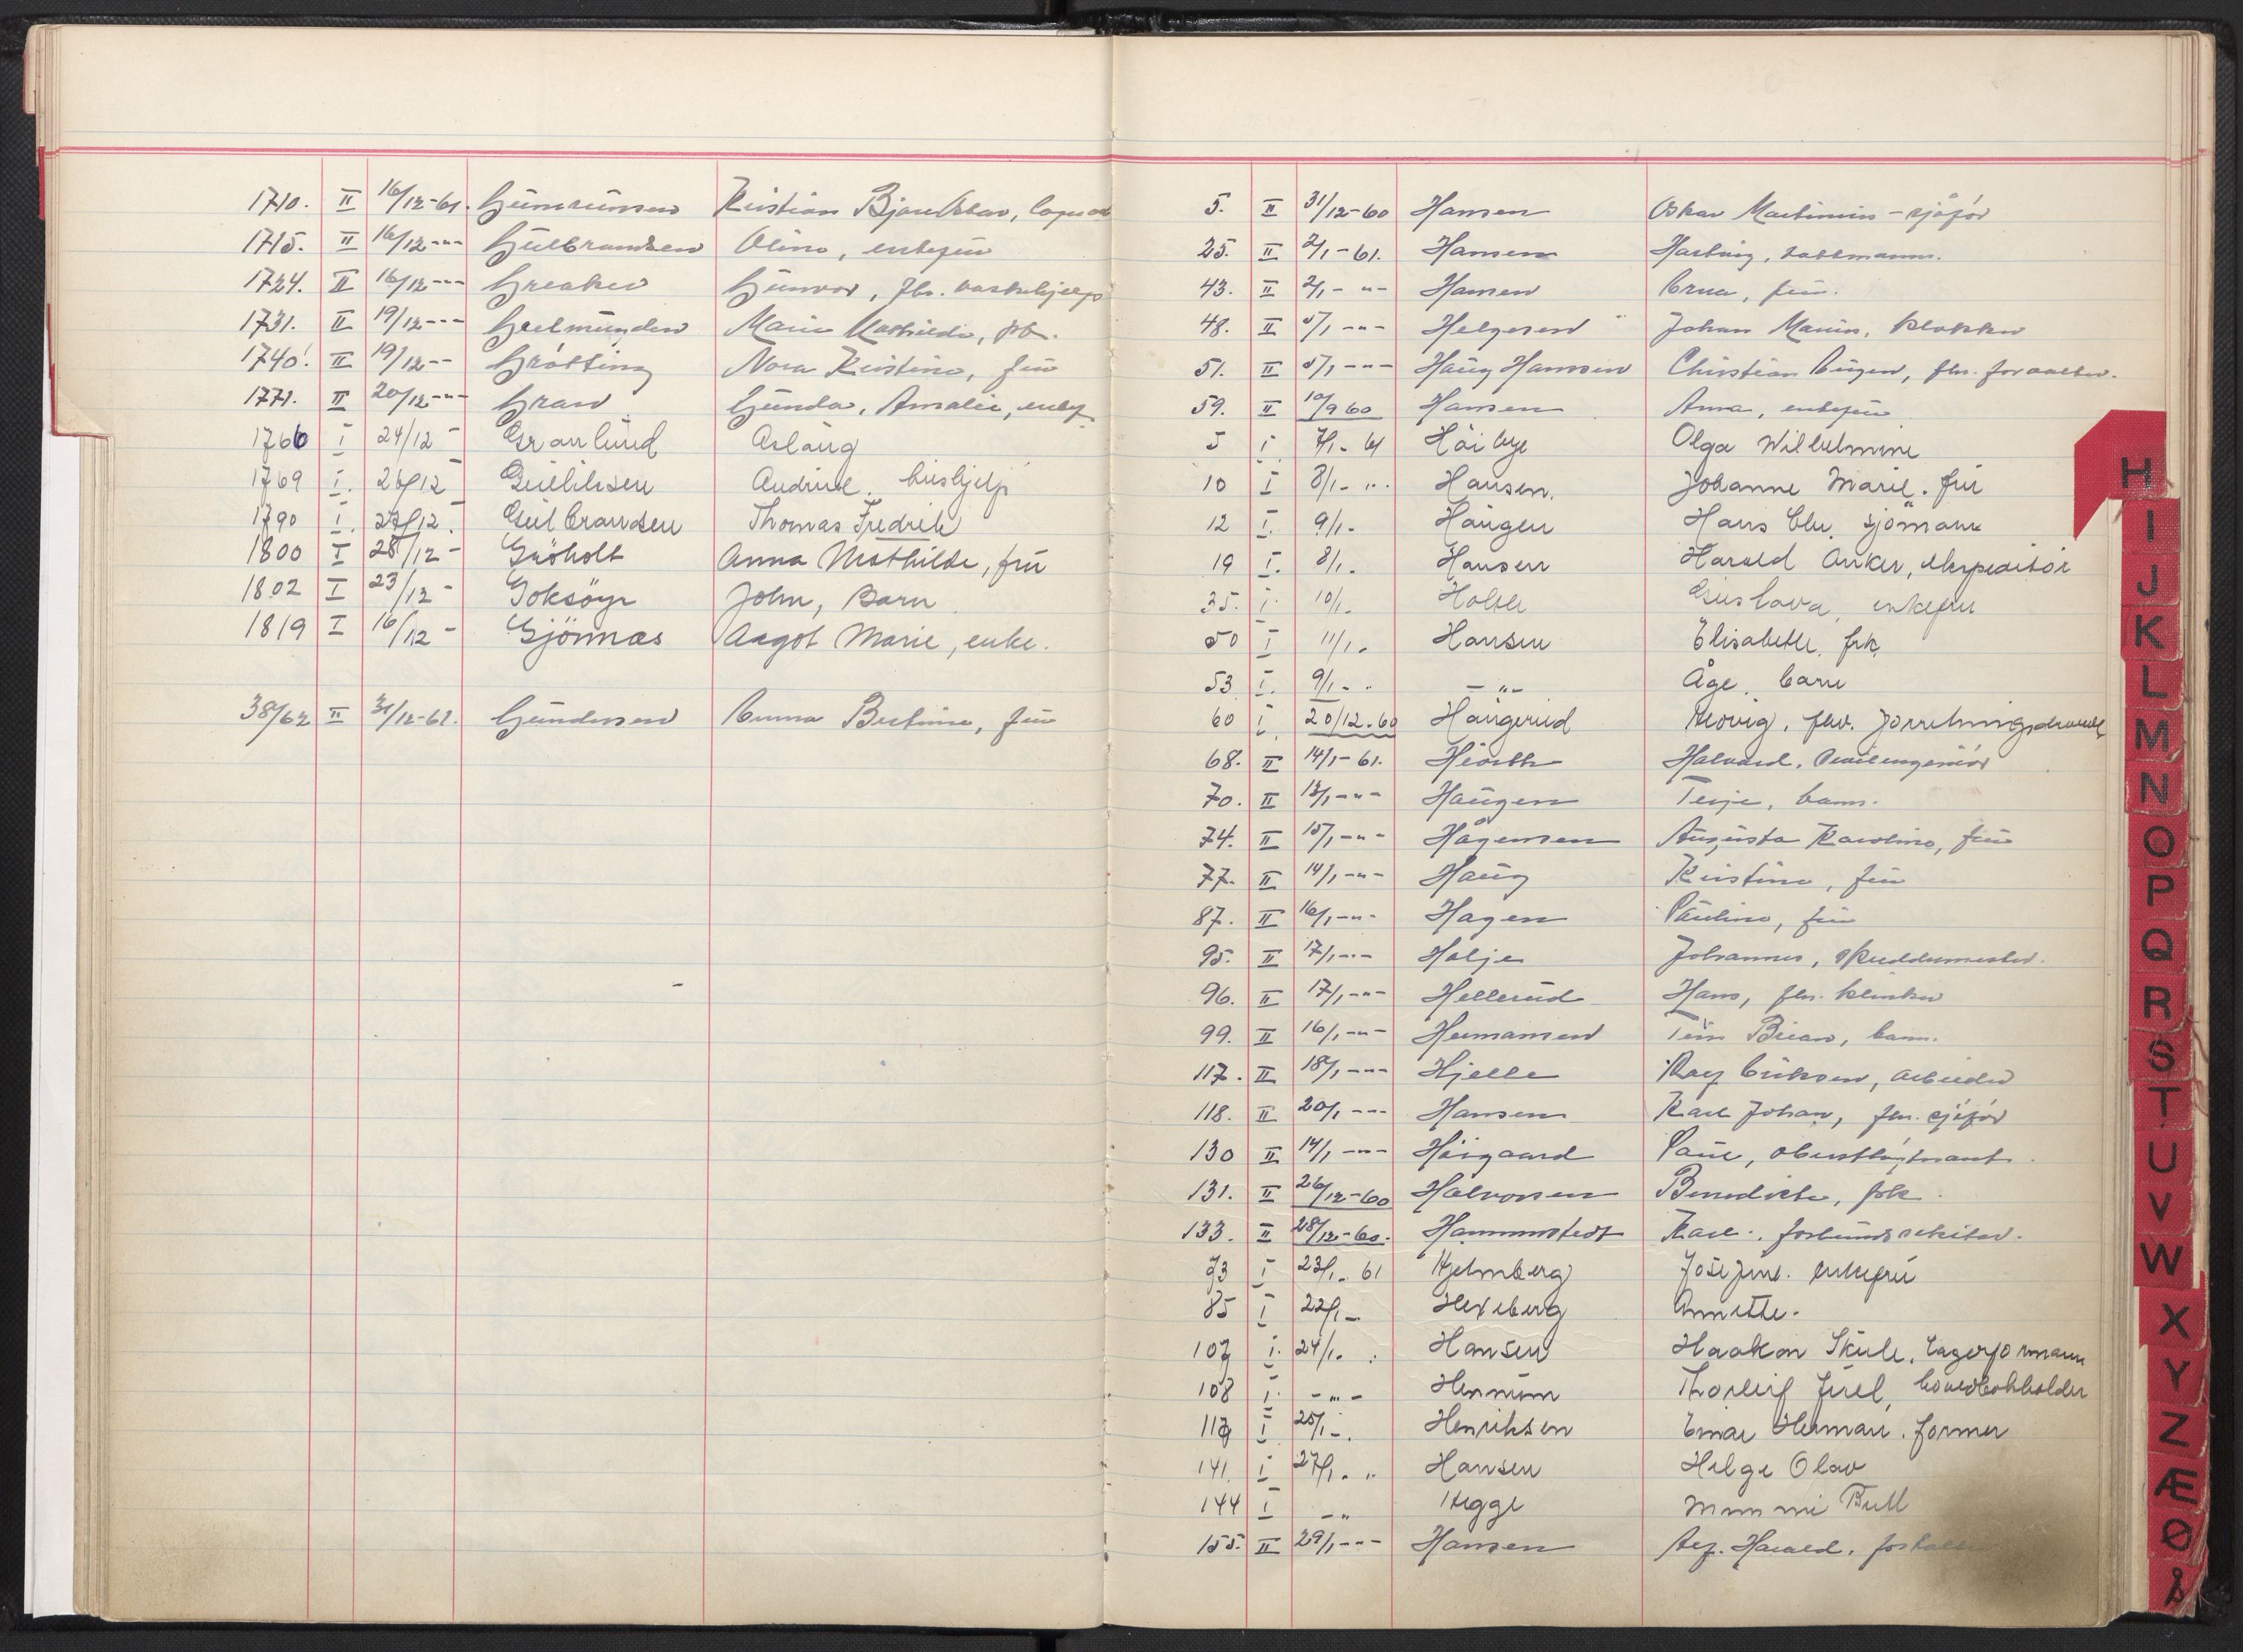 1710. II 16/12-61. Gumrumsen Kristian Bjarne Olav,
1715. II 16/12-"- Gulbrandsen Oline, enkefru
1724. II 16/12-"- Greaker Gunvor, fhv. vaskehjelp
1731. II 19/12-"- Marie Mathilde, frk.
1740. II 19/12-"- Grötting Nora Kristine, fru
1771. II 20/12-"- Gran Gunda, Amalie, enkef.
1766 I 24/12 - Granlund Aslaug
1769 I. 26/12 - Gulliksen Andrine. hushjelp
1790 I. 27/12 - Gulbrandsen Thomas Fredrik
1800 I 28/12 - Gröholt Anna Mathilde, fru
1802 I 23/12 - Goksöyr John, Barn
1819 I 16/12 - Gjönnæs Aagot Marie, enke.
38/62 II 31/12-61. Gundersen Emma Bertine, fru
5. II 31/12-60 Hansen Oskar Martinius - sjåför
25. II 2/1-61. Hansen Hartvig, vaktmann.
43. II 2/1-"- Hansen Erna, fru.
48. II 5/1-"- Helgesen Johan Marius, klokker
51. II 5/1-"- Haug Hansen Christian Eugen, fhv. forvalter.
59. II 10/9 60 Hansen Anna, enkefru
5 I 7/1- 61 Höibye Olga Wilhelmine
10 I 8/1- ". Hansen. Johanne Marie. fru
12 I. 9/1- Haugen Hans Chr. sjömann
19 I. 8/1. Hansen Harald Anker, ekspeditör
35. I. 10/1. Holth Gustava, enkefru
50 I 11/1. Hansen Elisabeth. frk.
53 I. 9/1- " - " - Åge. barn
60 I. 20/12-60 Haugerud Hedvig. fhv. forretningsdrivende
68. II 14/1-61. Hiorth Halvard. Sivilingeniör
70. II 13/1-"- Haugen Terje, barn.
74. II 15/1-"- Hågensen Augusta Karoline, fru
77. II 14/1-"- Haug Kristine, fru
87. II 16/1-"- Hagen Pauline, fru
95. II 17/1-"- Holje Johannes, skreddermester.
96. II 17/1-"- Hellerud Hans, fhv. klinker
99. II 16/1-"- Hermansen Tom Brian, barn.
117. II 18/1-"- Hjelle Roy Eriksen, arbeider
118. II 20/1-"- Hansen Karl Johan, fhv. sjåför
130 II 14/1-"- Höigaard Paul, oberstlöytnant.
131. II 26/12-60 Halvorsen Benedikte, frk.
133. II 28/12-60. Hammerstedt Karl. forbundssekretær.
73 I 23/1- 61 Hjelmberg Josefine. enkefru
85 I 22/1- Hexeberg Annette.
107 I. 24/1. " Hansen Haakon Skule, lagerformann
108 I. - " - Hennum Thorleif Juel, hovedbokholder
119 I 25/1-. Henriksen Einar Herman. former
141. I 27/1. " Hansen Helge Olav
144 I - " Hegge Mimmi Bull
155. II 29/1-"- Hansen Harald.
H
I
J
K
L
M
N
O
P
Q
R
S
T
U
V
W
X
Y
Z
Æ
Ø
Å